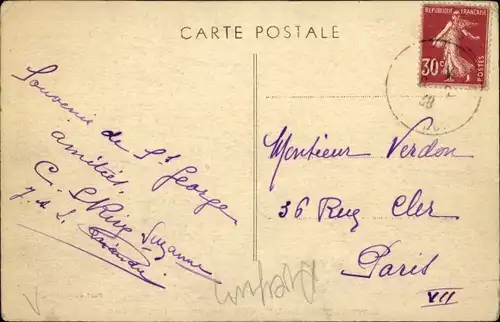 CARTE POSTALE
REPUBLIQUE FRANÇAISE
30c
POSTES
Souvenir de St George
amitiés
C. Suzanne
J. et L.
Monsieur Verdon
36 Rue Cler
Paris
VII